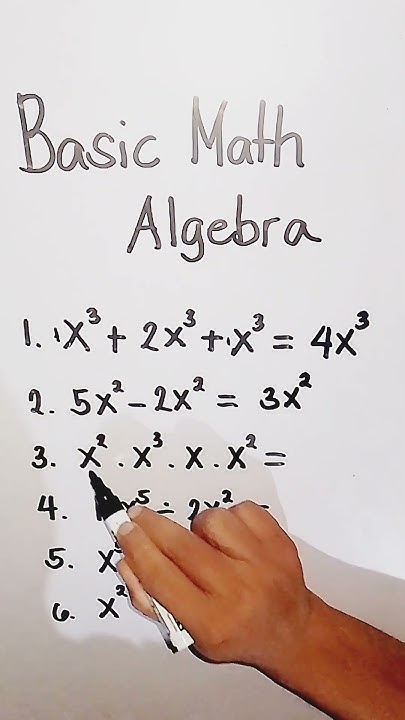 Basic Math
Algebra
1. 1x³ + 2x³ + 1x³ = 4x³
2. 5x² - 2x² = 3x²
3. x² . x³ . x . x² =
4. x⁵ ÷ 2x² =
5. x
6. x²